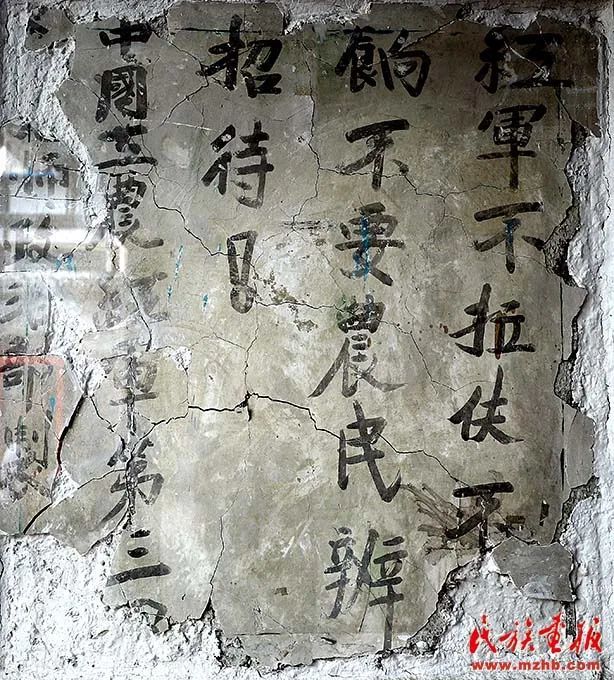 紅軍不拉伕不
餉不要農民辨
招待！
中國工農紅軍第三
師政治部製
民族画报
www.mzhb.com